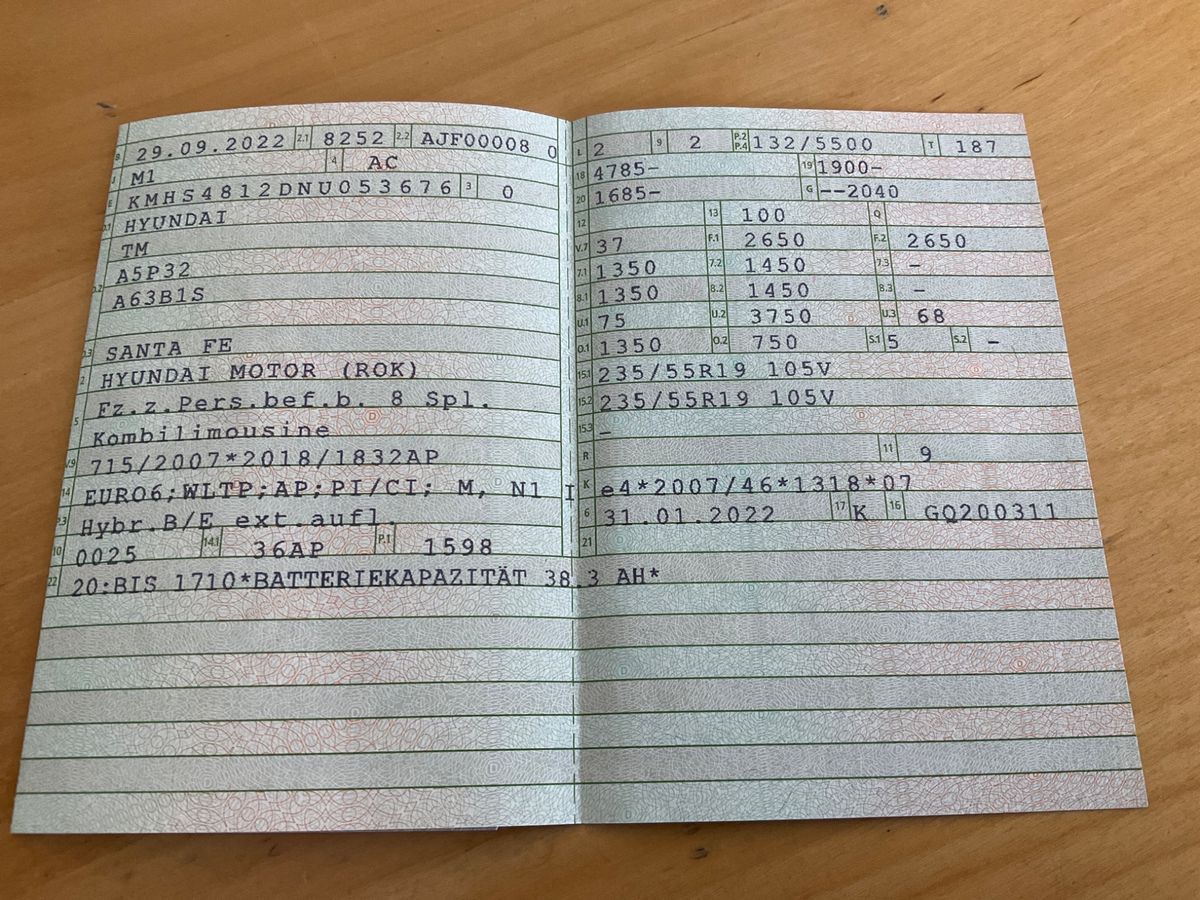 B 29.09.2022 2.1 8252 2.2 AJF00008 0
J M1 4 AC
E KMHS4812DNU053676 3 0
D.1 HYUNDAI
TM
D.2 A5P32
A63B1S
D.3 SANTA FE
2 HYUNDAI MOTOR (ROK)
5 Fz.z.Pers.bef.b. 8 Spl.
Kombilimousine
V.9 715/2007*2018/1832AP
14 EURO6;WLTP;AP;PI/CI; M, N1 I
P.3 Hybr.B/E ext.aufl.
10 0025 14.1 36AP P.1 1598
22 20:BIS 1710*BATTERIEKAPAZITÄT 38.3 AH*
L 2 9 2 P.2 P.4 132/5500 T 187
18 4785- 19 1900-
20 1685- G --2040
12 13 100 Q
V.7 37 F.1 2650 F.2 2650
7.1 1350 7.2 1450 7.3 -
8.1 1350 8.2 1450 8.3 -
U.1 75 U.2 3750 U.3 68
O.1 1350 O.2 750 S.1 5 S.2 -
15.1 235/55R19 105V
15.2 235/55R19 105V
15.3 -
R 11 9
K e4*2007/46*1318*07
6 31.01.2022 17 K 16 GQ200311
21